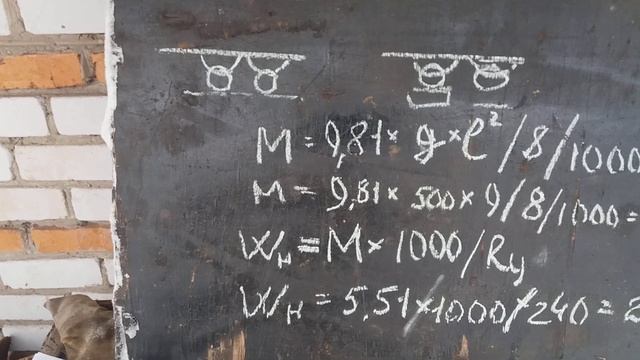 M = 9,81 × g × l² / 8 / 1000
M = 9,81 × 500 × 9 / 8 / 1000 =
Wн = M × 1000 / Ry
Wн = 5,51 × 1000 / 240 = 2